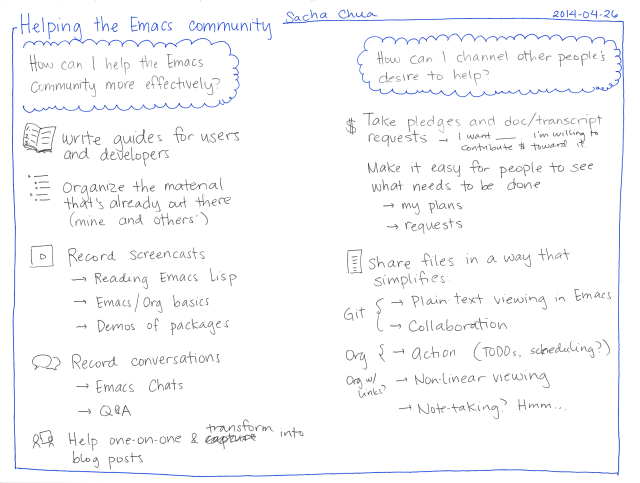 Helping the Emacs community
Sacha Chua
2014-04-26
How can I help the Emacs
Community more effectively?
Write guides for users
and developers
Organize the material
that's already out there
(mine and others')
Record screencasts
→ Reading Emacs Lisp
→ Emacs/Org basics
→ Demos of packages
Record conversations
→ Emacs Chats
→ Q&A
Help one-on-one & transform into
blog posts
How can I channel other people's
desire to help?
$ Take pledges and doc/transcript
requests → I want ___. I'm willing to
contribute $ toward it
Make it easy for people to see
what needs to be done
→ my plans
→ requests
Share files in a way that
simplifies:
Git { → Plain text viewing in Emacs
→ Collaboration
Org { → Action (TODOs, scheduling?)
Org w/
links? → Non-linear viewing
→ Note-taking? Hmm...